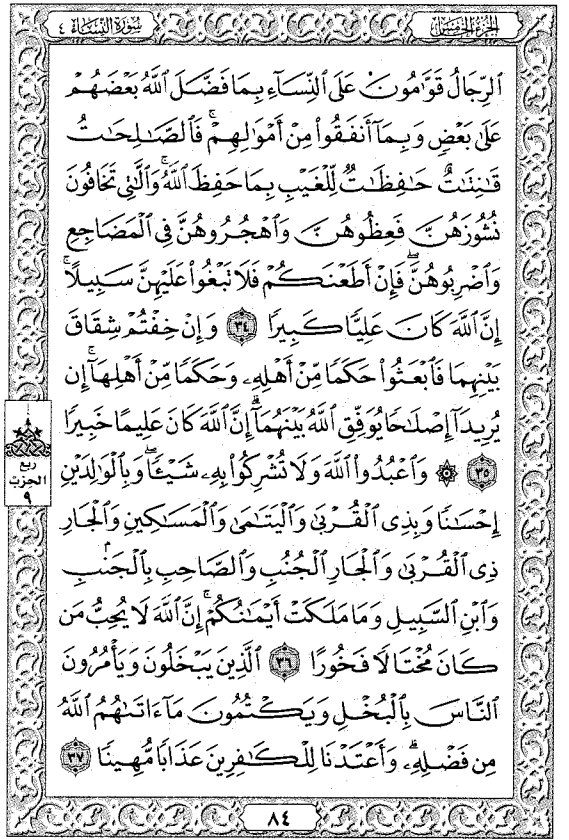 الجزء الخامس
سورة النساء ٤
ٱلرِّجَالُ قَوَّٰمُونَ عَلَى ٱلنِّسَآءِ بِمَا فَضَّلَ ٱللَّهُ بَعْضَهُمْ
عَلَىٰ بَعْضٍ وَبِمَآ أَنفَقُوا۟ مِنْ أَمْوَٰلِهِمْ ۚ فَٱلصَّٰلِحَٰتُ
قَٰنِتَٰتٌ حَٰفِظَٰتٌ لِّلْغَيْبِ بِمَا حَفِظَ ٱللَّهُ ۚ وَٱلَّٰتِى تَخَافُونَ
نُشُوزَهُنَّ فَعِظُوهُنَّ وَٱهْجُرُوهُنَّ فِى ٱلْمَضَاجِعِ
وَٱضْرِبُوهُنَّ ۖ فَإِنْ أَطَعْنَكُمْ فَلَا تَبْغُوا۟ عَلَيْهِنَّ سَبِيلًا ۗ
إِنَّ ٱللَّهَ كَانَ عَلِيًّا كَبِيرًا ٣٤ وَإِنْ خِفْتُمْ شِقَاقَ
بَيْنِهِمَا فَٱبْعَثُوا۟ حَكَمًا مِّنْ أَهْلِهِۦ وَحَكَمًا مِّنْ أَهْلِهَآ إِن
يُرِيدَآ إِصْلَٰحًا يُوَفِّقِ ٱللَّهُ بَيْنَهُمَآ ۗ إِنَّ ٱللَّهَ كَانَ عَلِيمًا خَبِيرًا
٣٥ ۞ وَٱعْبُدُوا۟ ٱللَّهَ وَلَا تُشْرِكُوا۟ بِهِۦ شَيْـًٔا ۖ وَبِٱلْوَٰلِدَيْنِ
إِحْسَٰنًا وَبِذِى ٱلْقُرْبَىٰ وَٱلْيَتَٰمَىٰ وَٱلْمَسَٰكِينِ وَٱلْجَارِ
ذِى ٱلْقُرْبَىٰ وَٱلْجَارِ ٱلْجُنُبِ وَٱلصَّاحِبِ بِٱلْجَنۢبِ
وَٱبْنِ ٱلسَّبِيلِ وَمَا مَلَكَتْ أَيْمَٰنُكُمْ ۗ إِنَّ ٱللَّهَ لَا يُحِبُّ مَن
كَانَ مُخْتَالًا فَخُورًا ٣٦ ٱلَّذِينَ يَبْخَلُونَ وَيَأْمُرُونَ
ٱلنَّاسَ بِٱلْبُخْلِ وَيَكْتُمُونَ مَآ ءَاتَىٰهُمُ ٱللَّهُ
مِن فَضْلِهِۦ ۗ وَأَعْتَدْنَا لِلْكَٰفِرِينَ عَذَابًا مُّهِينًا ٣٧
ربع
الحزب
٩
٨٤